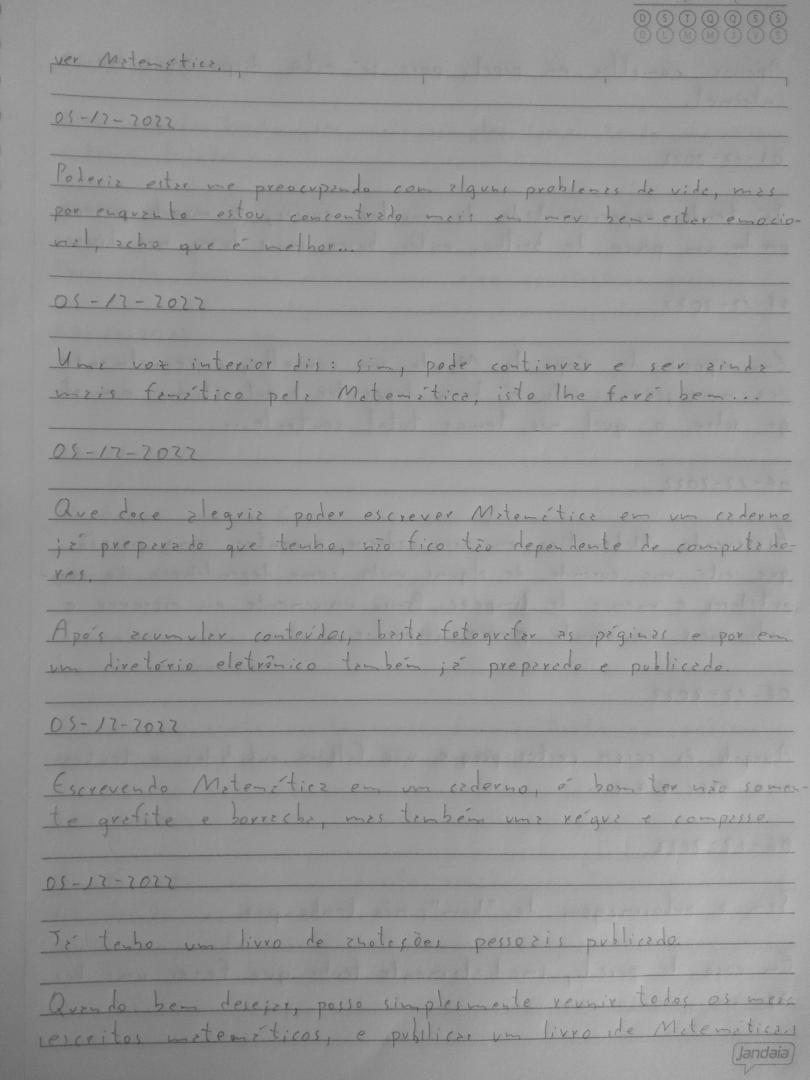 D S T Q Q S S
D L M M J V S
ver Matemática.
05-12-2022
Poderia estar me preocupando com alguns problemas da vida, mas
por enquanto estou concentrado mais em meu bem-estar emocio-
nal, acho que é melhor...
05-12-2022
Uma voz interior dis: sim, pode continuar e ser ainda
mais fanático pela Matemática, isto lhe fará bem...
05-12-2022
Que doce alegria poder escrever Matemática em um caderno
já preparado que tenho, não fico tão dependente de computado-
res.
Após acumular conteúdos, basta fotografar as páginas e por em
um diretório eletrônico também já preparado e publicado.
05-12-2022
Escrevendo Matemática em um caderno, é bom ter não somen-
te grafite e borracha, mas também uma régua e compasso.
05-12-2022
Já tenho um livro de anotações pessoais publicado.
Quando bem desejar, posso simplesmente reunir todos os meus
escritos matemáticos, e publicar um livro de Matemática.
Jandaia